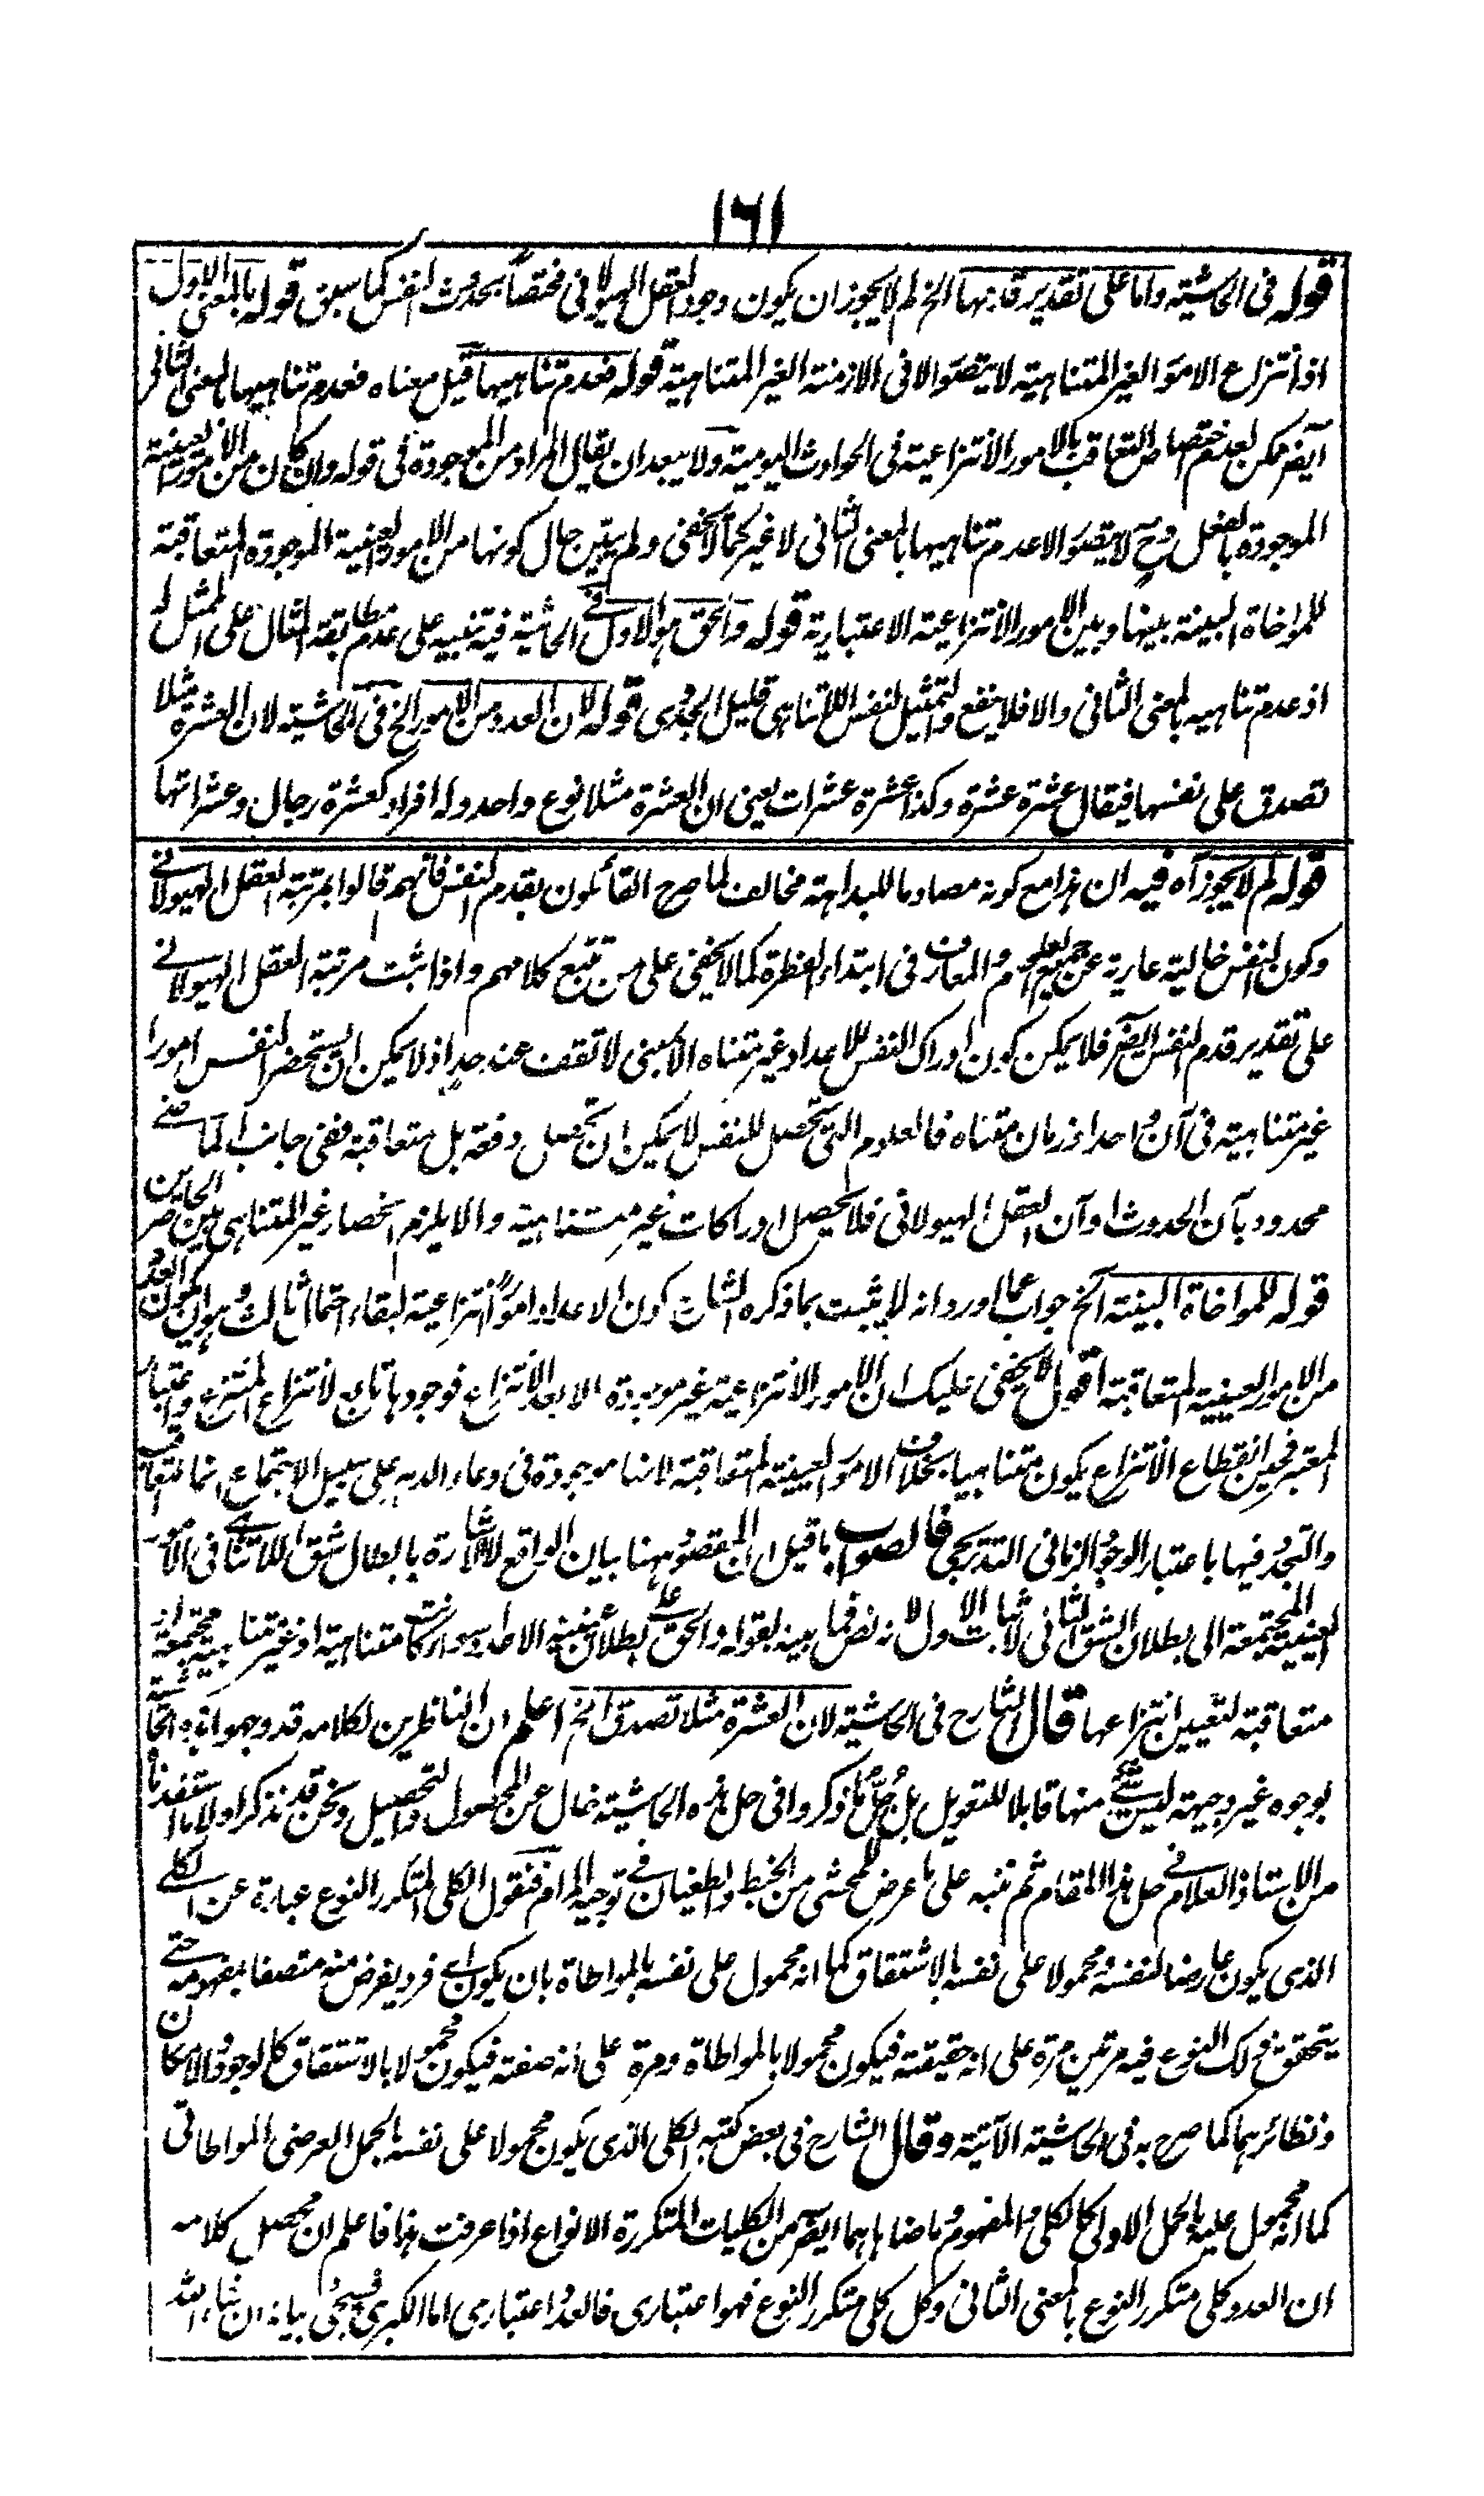 ١٦١
قوله فى الحاشية واما على تقدير قدمها الخ لم لا يجوز ان يكون وجود العقل الهيولانى مختصا بحدوث النفس كما سبق قوله بالمعنى الاول
اذ انتزاع الامور الغير المتناهية لا يتصور الا فى الازمنة الغير المتناهية قوله فعدم تناهيها قيل معناه فعدم تناهيها بالمعنى الثانى
ايضر ممكن لعدم اختصاص التعاقب بالامور الانتزاعية فى الحوادث اليومية ولا يبعد ان يقال المراد من الموجودة فى قوله وان كان من الامور العينية
الموجودة بالفعل وح لا يتصور الا عدم تناهيها بالمعنى الثانى لا غير كما لا يخفى ولم يبين حال كونها من الامور العينية الموجودة المتعاقبة
للمواخاة البينة بينها وبين الامور الانتزاعية الاعتبارية قوله والحق هو الاول فى الحاشية فيه تنبيه على عدم مطابقة المثال على الممثل له
اذ عدم تناهيه بالمعنى الثانى والا فلا ينفع والتمثيل لنفس اللاتناهى قليل الجدوى قوله لان العدد من الامور الخ فى الحاشية لان العشرة مثلا
تصدق على نفسها فيقال عشرة عشرة وكذا عشرة عشرات يعنى ان العشرة مثلا نوع واحد وله افراد كعشرة رجال وعشراتها
قوله لم لا يجوز آه فيه ان هذا مع كونه مصادما للبداهة مخالف لما صرح القائلون بقدم النفس فانهم قالوا بمرتبة العقل الهيولانے
وكون النفس خالية عارية عن جميع العلوم والمعارف فى ابتداء الفطرة كما لا يخفى على من تتبع كلامهم واذا ثبت مرتبة العقل الهيولانے
على تقدير قدم النفس ايضر فلا يمكن كون ادراك النفس للاعداد غير متناه الا بمعنى لا تقف عند حد اذ لا يمكن ان يستحضر النفس امورا
غير متناهية فى آن واحد او زمان متناه فالعلوم التى تحصل للنفس لا يمكن ان تحصل دفعة بل متعاقبة ففى جانب الماضے
محدود بآن الحدوث او آن العقل الهيولانى فلا يحصل ادراكات غير متناهية والا يلزم انحصار غير المتناهى بين الحاصرين
قوله للمواخاة البينة الخ جواب عما اورد انه لا يثبت بما ذكره الشارح كون الاعداد امورا انتزاعية لبقاء احتمال ثالث وهو ان يكون العدد
من الامور العينية المتعاقبة اقول لا يخفى عليك ان الامور الانتزاعية غير موجودة الا بعد الانتزاع فوجودها تابع لانتزاع المنتزع واعتبار
المعتبر فحين انقطاع الانتزاع يكون متناهيا بخلاف الامور العينية المتعاقبة لانها موجودة فى وعاء الدهر على سبيل الاجتماع انما التعاقب
والتجدد فيها باعتبار الوجود الزمانى التدريجى فالصواب ما قيل ان المقصود ههنا بيان الواقع لا الاشارة بابطال شق اللاتناهى فى الامور
العينية المجتمعة الى بطلان الشق الثانى لاثبات الاول لانه نص فيما بينه بقوله والحق بطلان عينية الاعداد سواء كانت متناهية او غير متناهية مجتمعة او
متعاقبة لتعيين انتزاعها قال الشارح فى الحاشية لان العشرة مثلا تصدق الخ اعلم ان الناظرين لكلامه قد وجهوا هذه الحاشية
بوجوه غير وجيهة ليس شئ منها قابلا للتعويل بل جل ما ذكروا فى حل هذه الحاشية خال عن المحصول والتحصيل ونحن قد نذكر اولا ما استفدنا
من الاستاذ العلام فى حل هذا المقام ثم ننبه على ما عرض للمحشى من الخبط والطغيان فى توجيه المرام فنقول الكلى المتكرر النوع عبارة عن الكلے
الذى يكون عارضا لنفسه ومحمولا على نفسه بالاشتقاق كما انه محمول على نفسه بالمواطاة بان يكون اى فرد يفرض منه متصفا بمفهومه حتے
يتحقق ذلك النوع فيه مرتين مرة على انه حقيقته فيكون محمولا بالمواطاة ومرة على انه صفته فيكون محمولا بالاشتقاق كالوجود والامكان
ونظائرهما كما صرح به فى الحاشية الآتية وقال الشارح فى بعض كتبه الكلى الذى يكون محمولا على نفسه بالحمل العرضى المواطاتى
كما انه محمول عليه بالحمل الاولى كالكلى والمفهوم وما ضاهاهما ايضر من الكليات المتكررة الانواع اذا عرفت هذا فاعلم ان محصل كلامه
ان العدد كلى متكرر النوع بالمعنى الثانى وكل كلى متكرر النوع فهو اعتبارى فالعدد اعتبارى اما الكبرى فسيجئ بيانه ان شاء الله